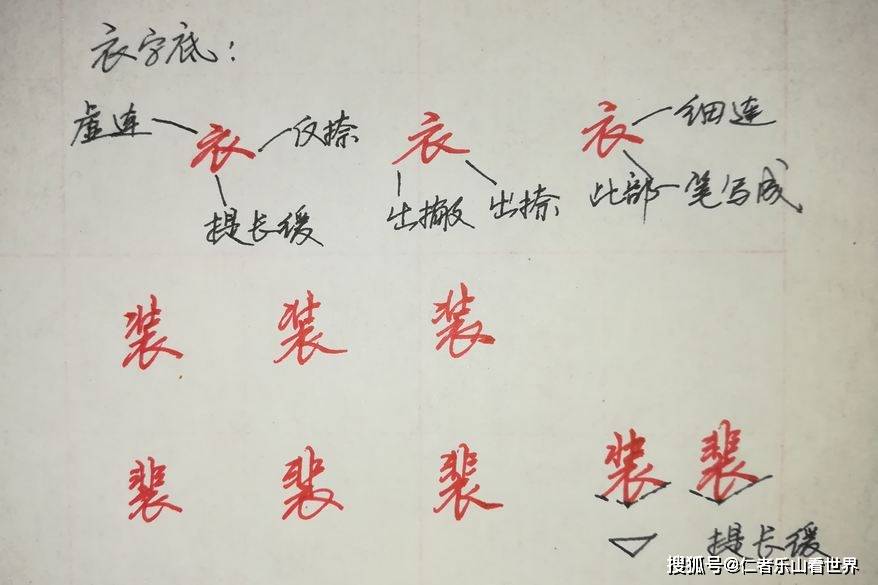 衣字底：
虚连 衣 反捺 衣 衣 细连
提长缓 出撇 出捺 此部一笔写成
装 装 装
裴 裴 裴 装 裴
提长缓
搜狐号@仁者乐山看世界